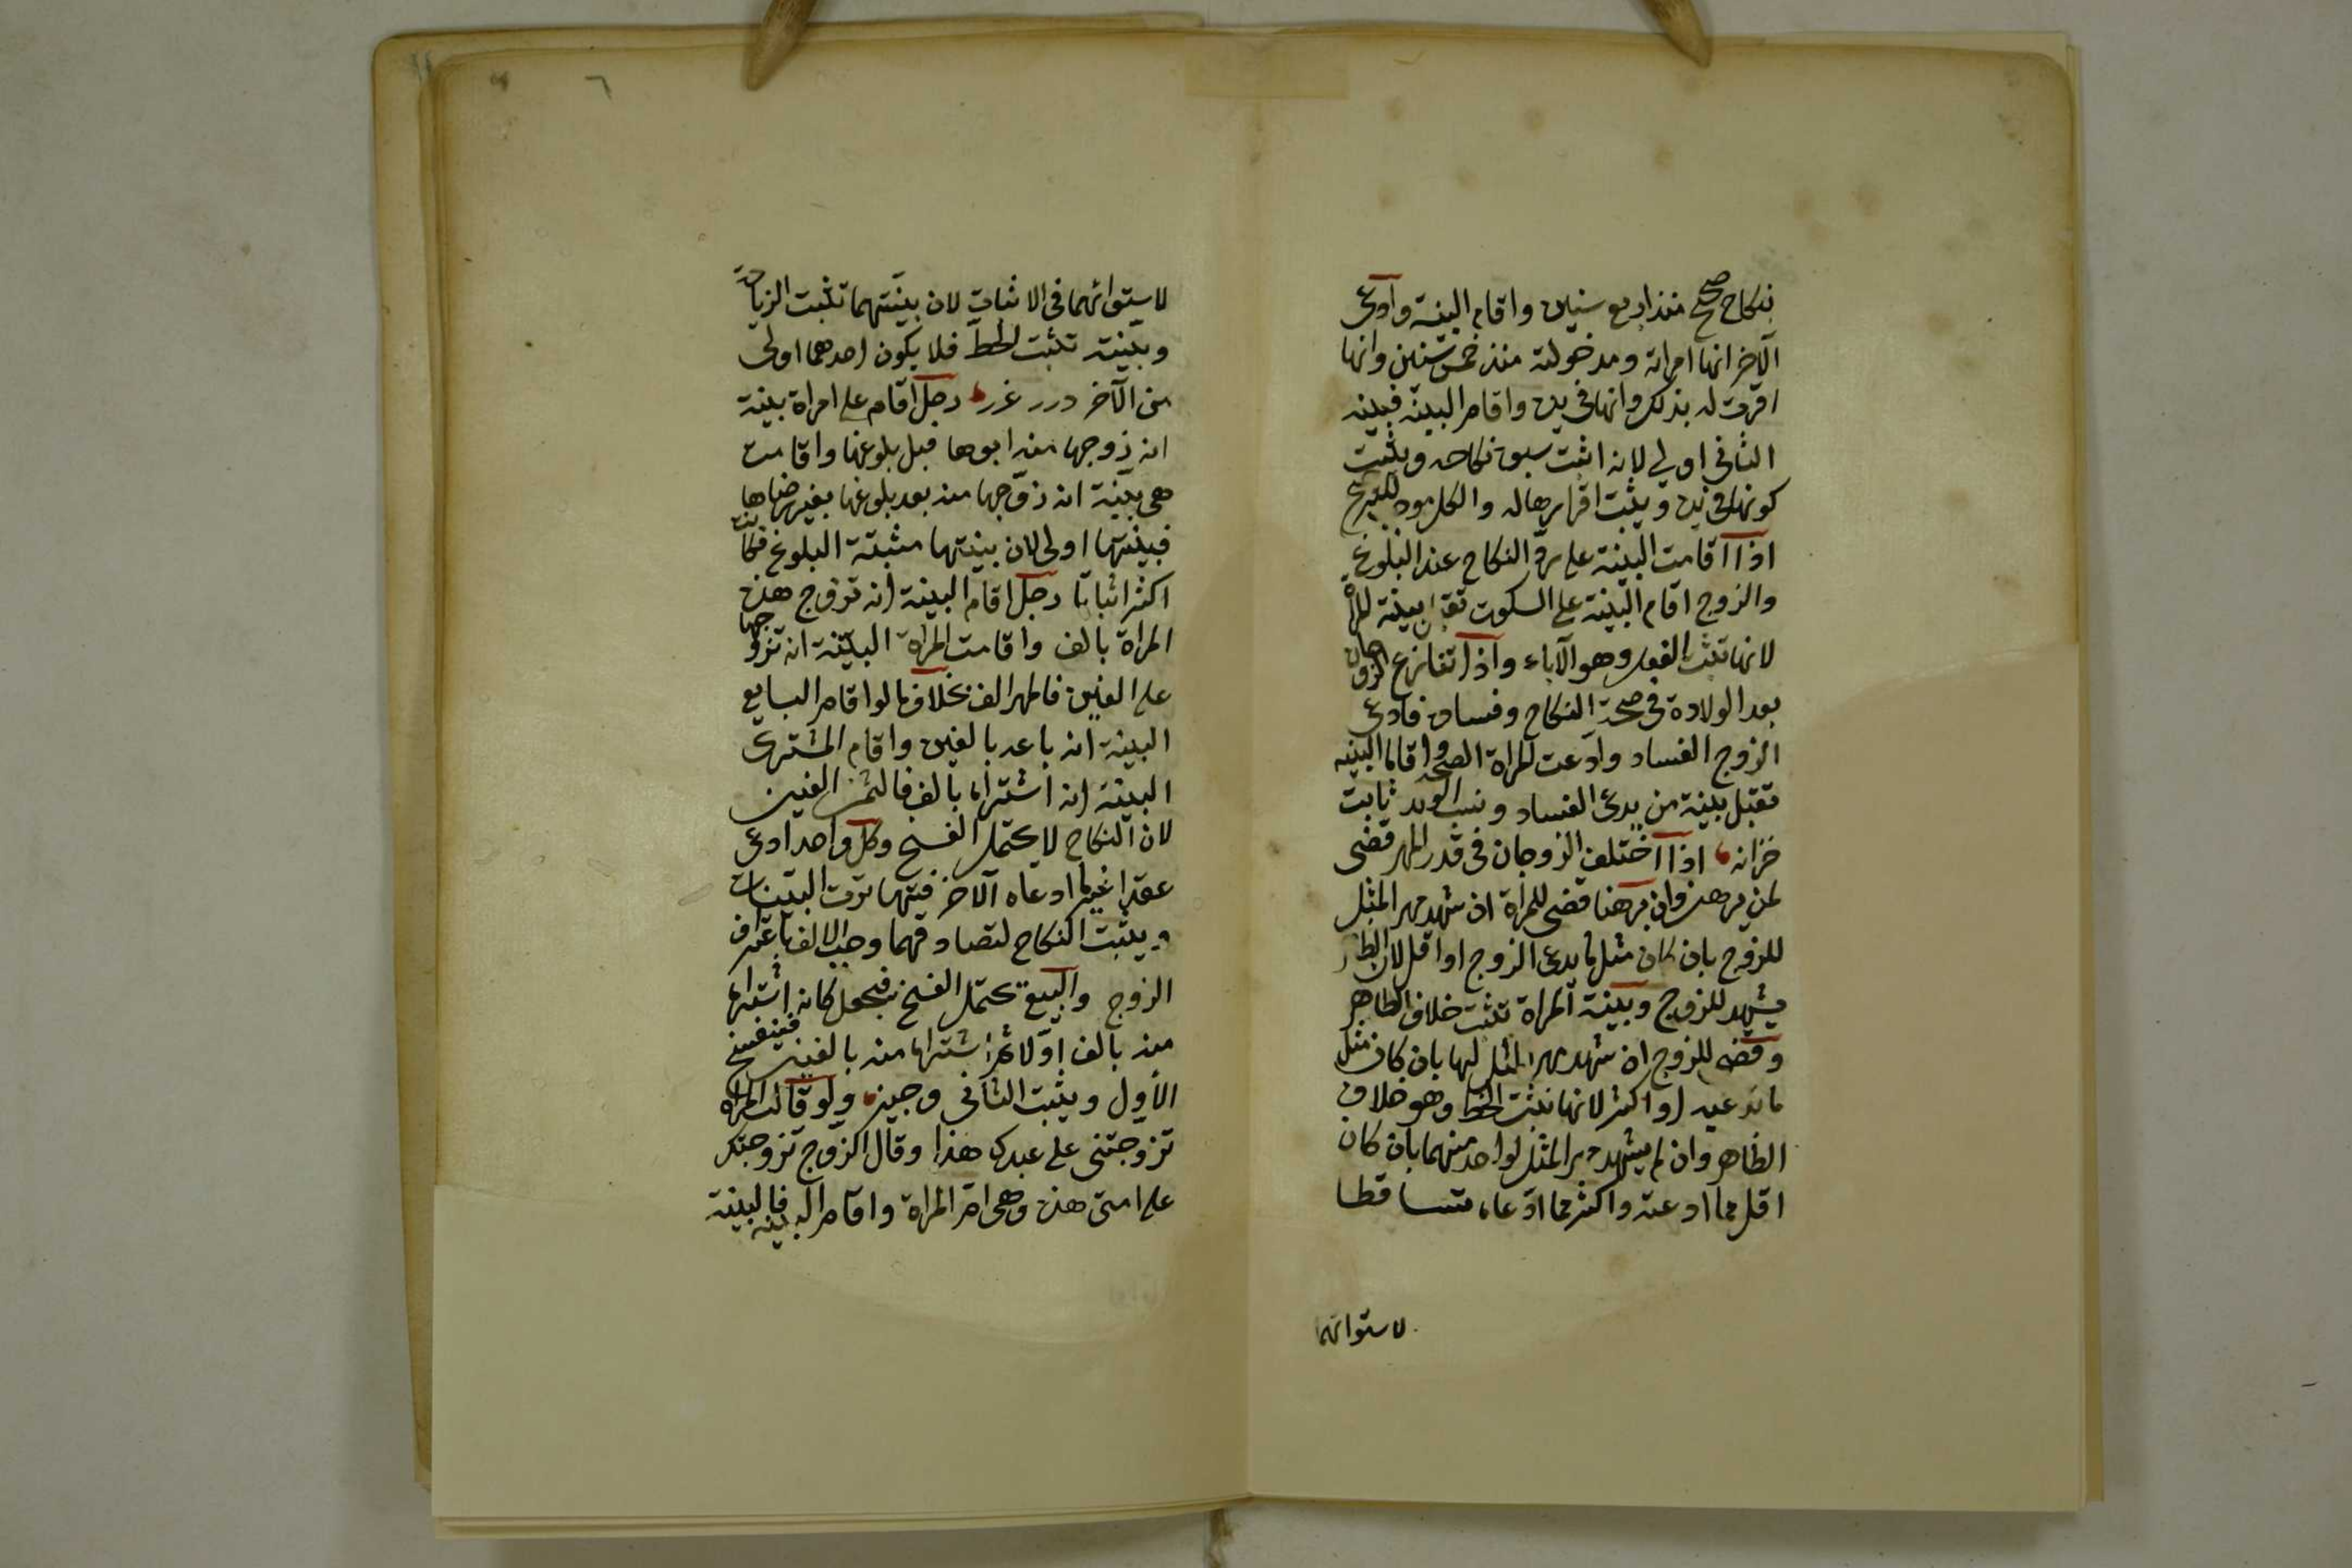 بنكاح صحيح منذ اربع سنين واقام البينة وادعى
الآخر انها امراته ومدخولته منذ خمس سنين وانها
اقرت له بذلك وانها في يده واقام البينة فبينة
الثاني اولى لانه اثبت سبق نكاحه ويثبت
كونها في يده ويثبت اقرارها له والكل مود للترجيح
اذا اقامت البينة على رد النكاح عند البلوغ
والزوج اقام البينة على السكوت تقبل بينة المراة
لانها تثبت الفعل وهو الآباء واذا تنازع الزوجان
بعد الولادة في صحة النكاح وفساده فادعى
الزوج الفساد وادعت المراة الصحة واقاما البينه
تقبل بينة من يدعى الفساد ونسب الولد ثابت
خزانه اذا اختلف الزوجان في قدر المهر قضى
لمن برهن وان برهنا قضى للمراة ان شهد مهر المثل
للزوج بان كان مثل ما يدعى الزوج او اقل لان الظاهر
يشهد للزوج وبينة المراة تثبت خلاف الظاهر
وقضى للزوج ان شهد مهر المثل لها بان كان مثل
ما تدعيه او اكثر لانها تثبت الحط وهو خلاف
الظاهر وان لم يشهد مهر المثل لواحد منهما بان كان
اقل مما ادعته واكثر مما ادعاه تساقطا
لاستوائهما
٦
لاستوائهما في الاثبات لان بينتهما تثبت الزيادة
وبينته تثبت الحط فلا يكون احدهما اولى
من الآخر درر غرر رجل اقام على امراة بينة
انه زوجها منه ابوها قبل بلوغها واقامت
هي بينة انه زوجها منه بعد بلوغها بغير رضاها
فبينتها اولى لان بينتها مثبتة البلوغ فكانت
اكثر اثباتا رجل اقام البينة انه تزوج هذه
المراة بالف واقامت المراة البينة انه تزوجها
على الفين فالمهر الف بخلاف ما لو اقام البايع
البينة انه باعه بالفين واقام المشترى
البينة انه اشتراه بالف فالثمن الفين
لان النكاح لا يحتمل الفسخ وكل واحد ادعى
عقدا غير ما ادعاه الآخر فتهاترت البينات
ويثبت النكاح لتصادقهما وجب الالف باعتراف
الزوج والبيع يحتمل الفسخ فيجعل كانه اشتراه
منه بالف اولا ثم اشتراه منه بالفين فينفسخ
الأول ويثبت الثاني وجيز ولو قالت المراة
تزوجتني على عبدك هذا وقال الزوج تزوجتك
على امتي هذه وهي ام المراة واقام البينة فالبينة